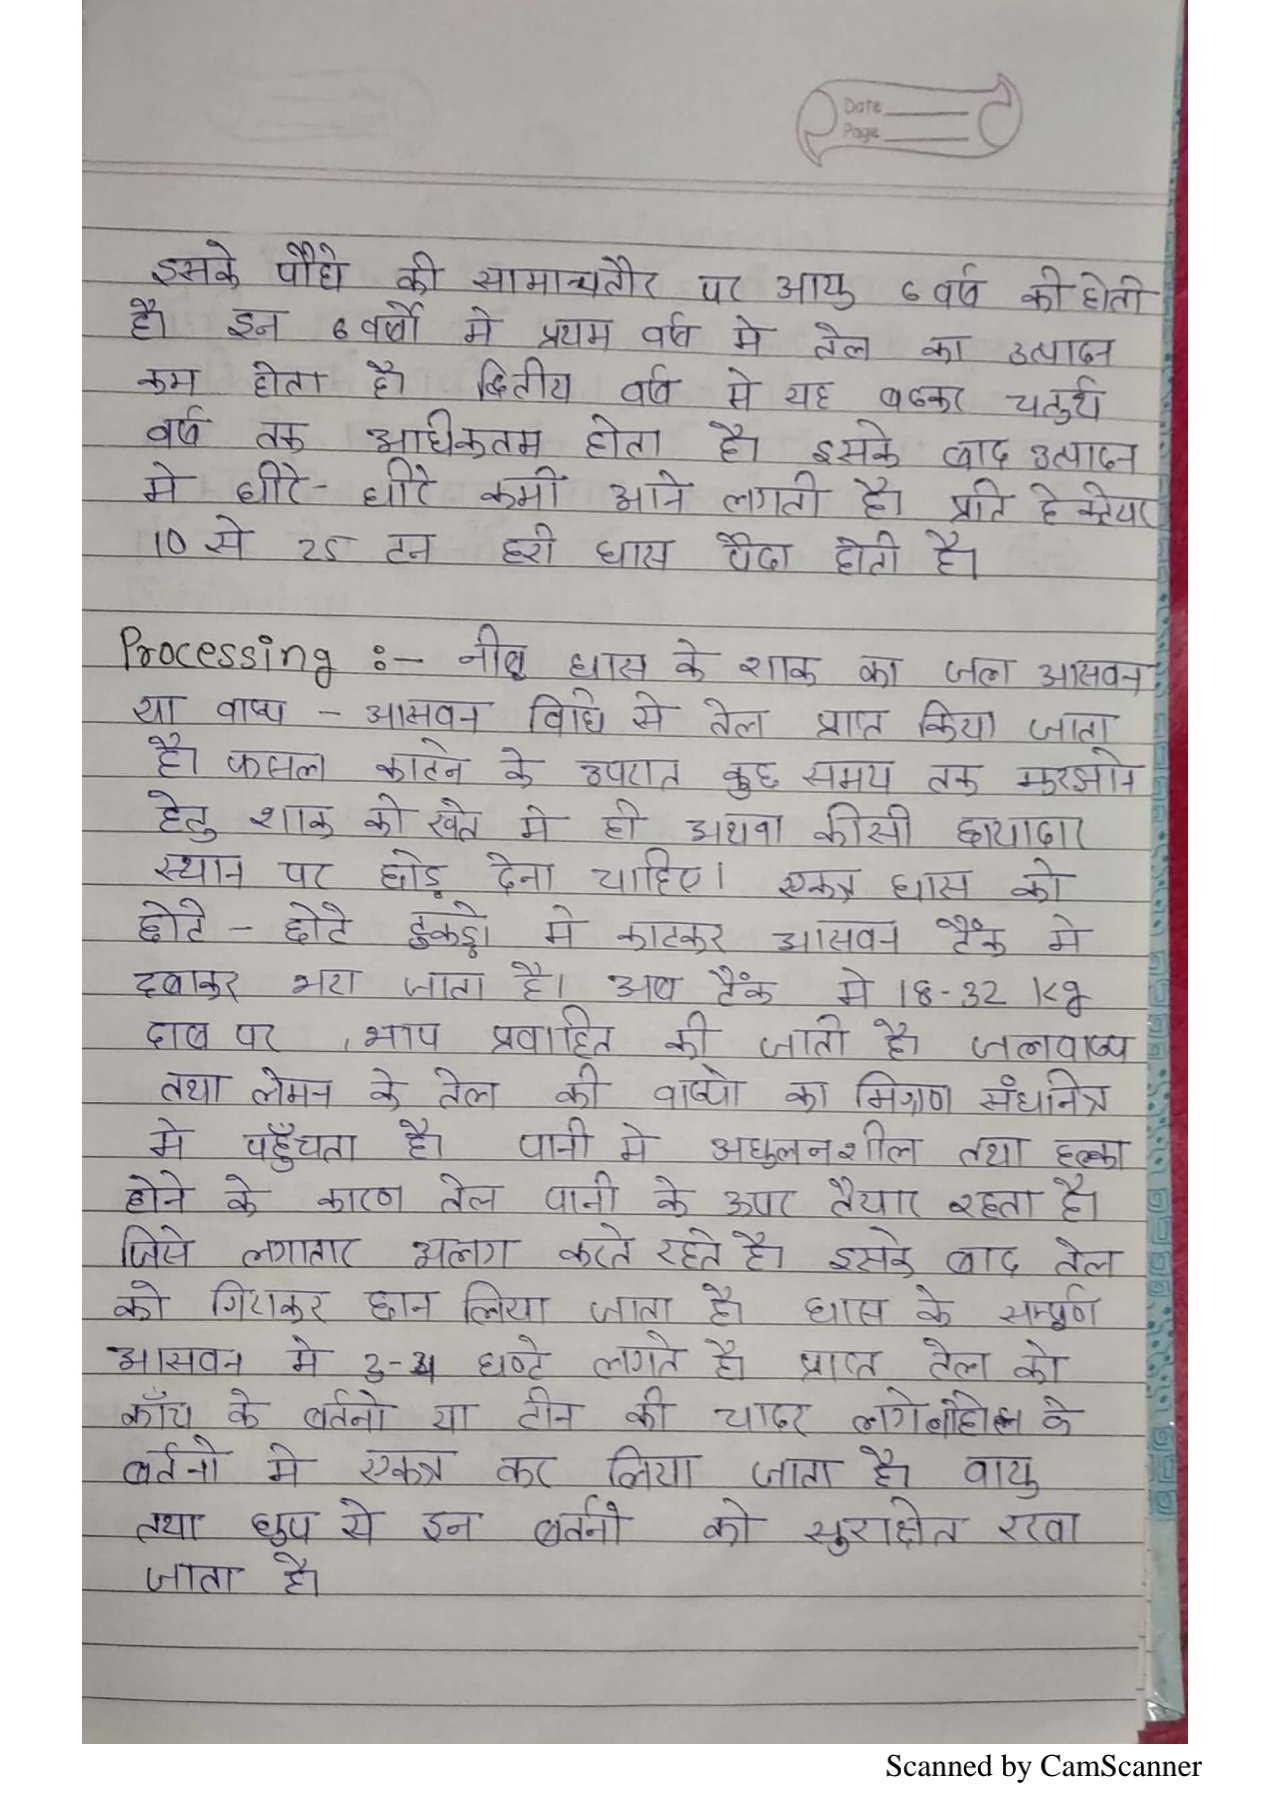 Date
Page
इसके पौधे की सामान्यतौर पर आयु 6 वर्ष की होती
है। इन 6 वर्षो मे प्रथम वर्ष मे तेल का उत्पादन
कम होता है। द्वितीय वर्ष मे यह बढकर चतुर्थ
वर्ष तक अधिकतम होता है। इसके बाद उत्पादन
मे धीरे- धीरे कमी आने लगती है। प्रति हेक्टेयर
10 से 25 टन हरी घास पैदा होती है।
Processing :- नीबू घास के शाक का जल आसवन
या वाष्प - आसवन विधि से तेल प्राप्त किया जाता
है। फसल काटने के उपरात कुछ समय तक मुरझाने
हेतु शाक को खेत मे ही अथवा कीसी छायादार
स्थान पर छोड़ देना चाहिए। एकत्र घास को
छोटे - छोटे टुकड़ो मे काटकर आसवन टैंक मे
दबाकर भरा जाता है। अब टैंक मे 18-32 kg
दाब पर , भाप प्रवाहित की जाती है। जलवाष्प
तथा लेमन के तेल की वाष्पो का मिश्रण संधनित्र
मे पहुँचता है। पानी मे अघुलनशील तथा हल्का
होने के कारण तेल पानी के ऊपर तैयार रहता है।
जिसे लगातार अलग करते रहते है। इसके बाद तेल
को गिराकर छान लिया जाता है। घास के सम्पूर्ण
आसवन मे 3-4 घण्टे लगते है। प्राप्त तेल को
काँच के बर्तनो या टीन की चादर लगे के
बर्तनो मे एकत्र कर लिया जाता है। वायु
तथा धुप से इन बर्तनो को सुरक्षित रखा
जाता है।
Scanned by CamScanner